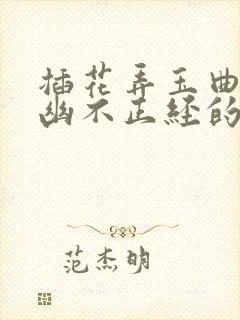 插花弄玉曲
幽不正经的
范杰明